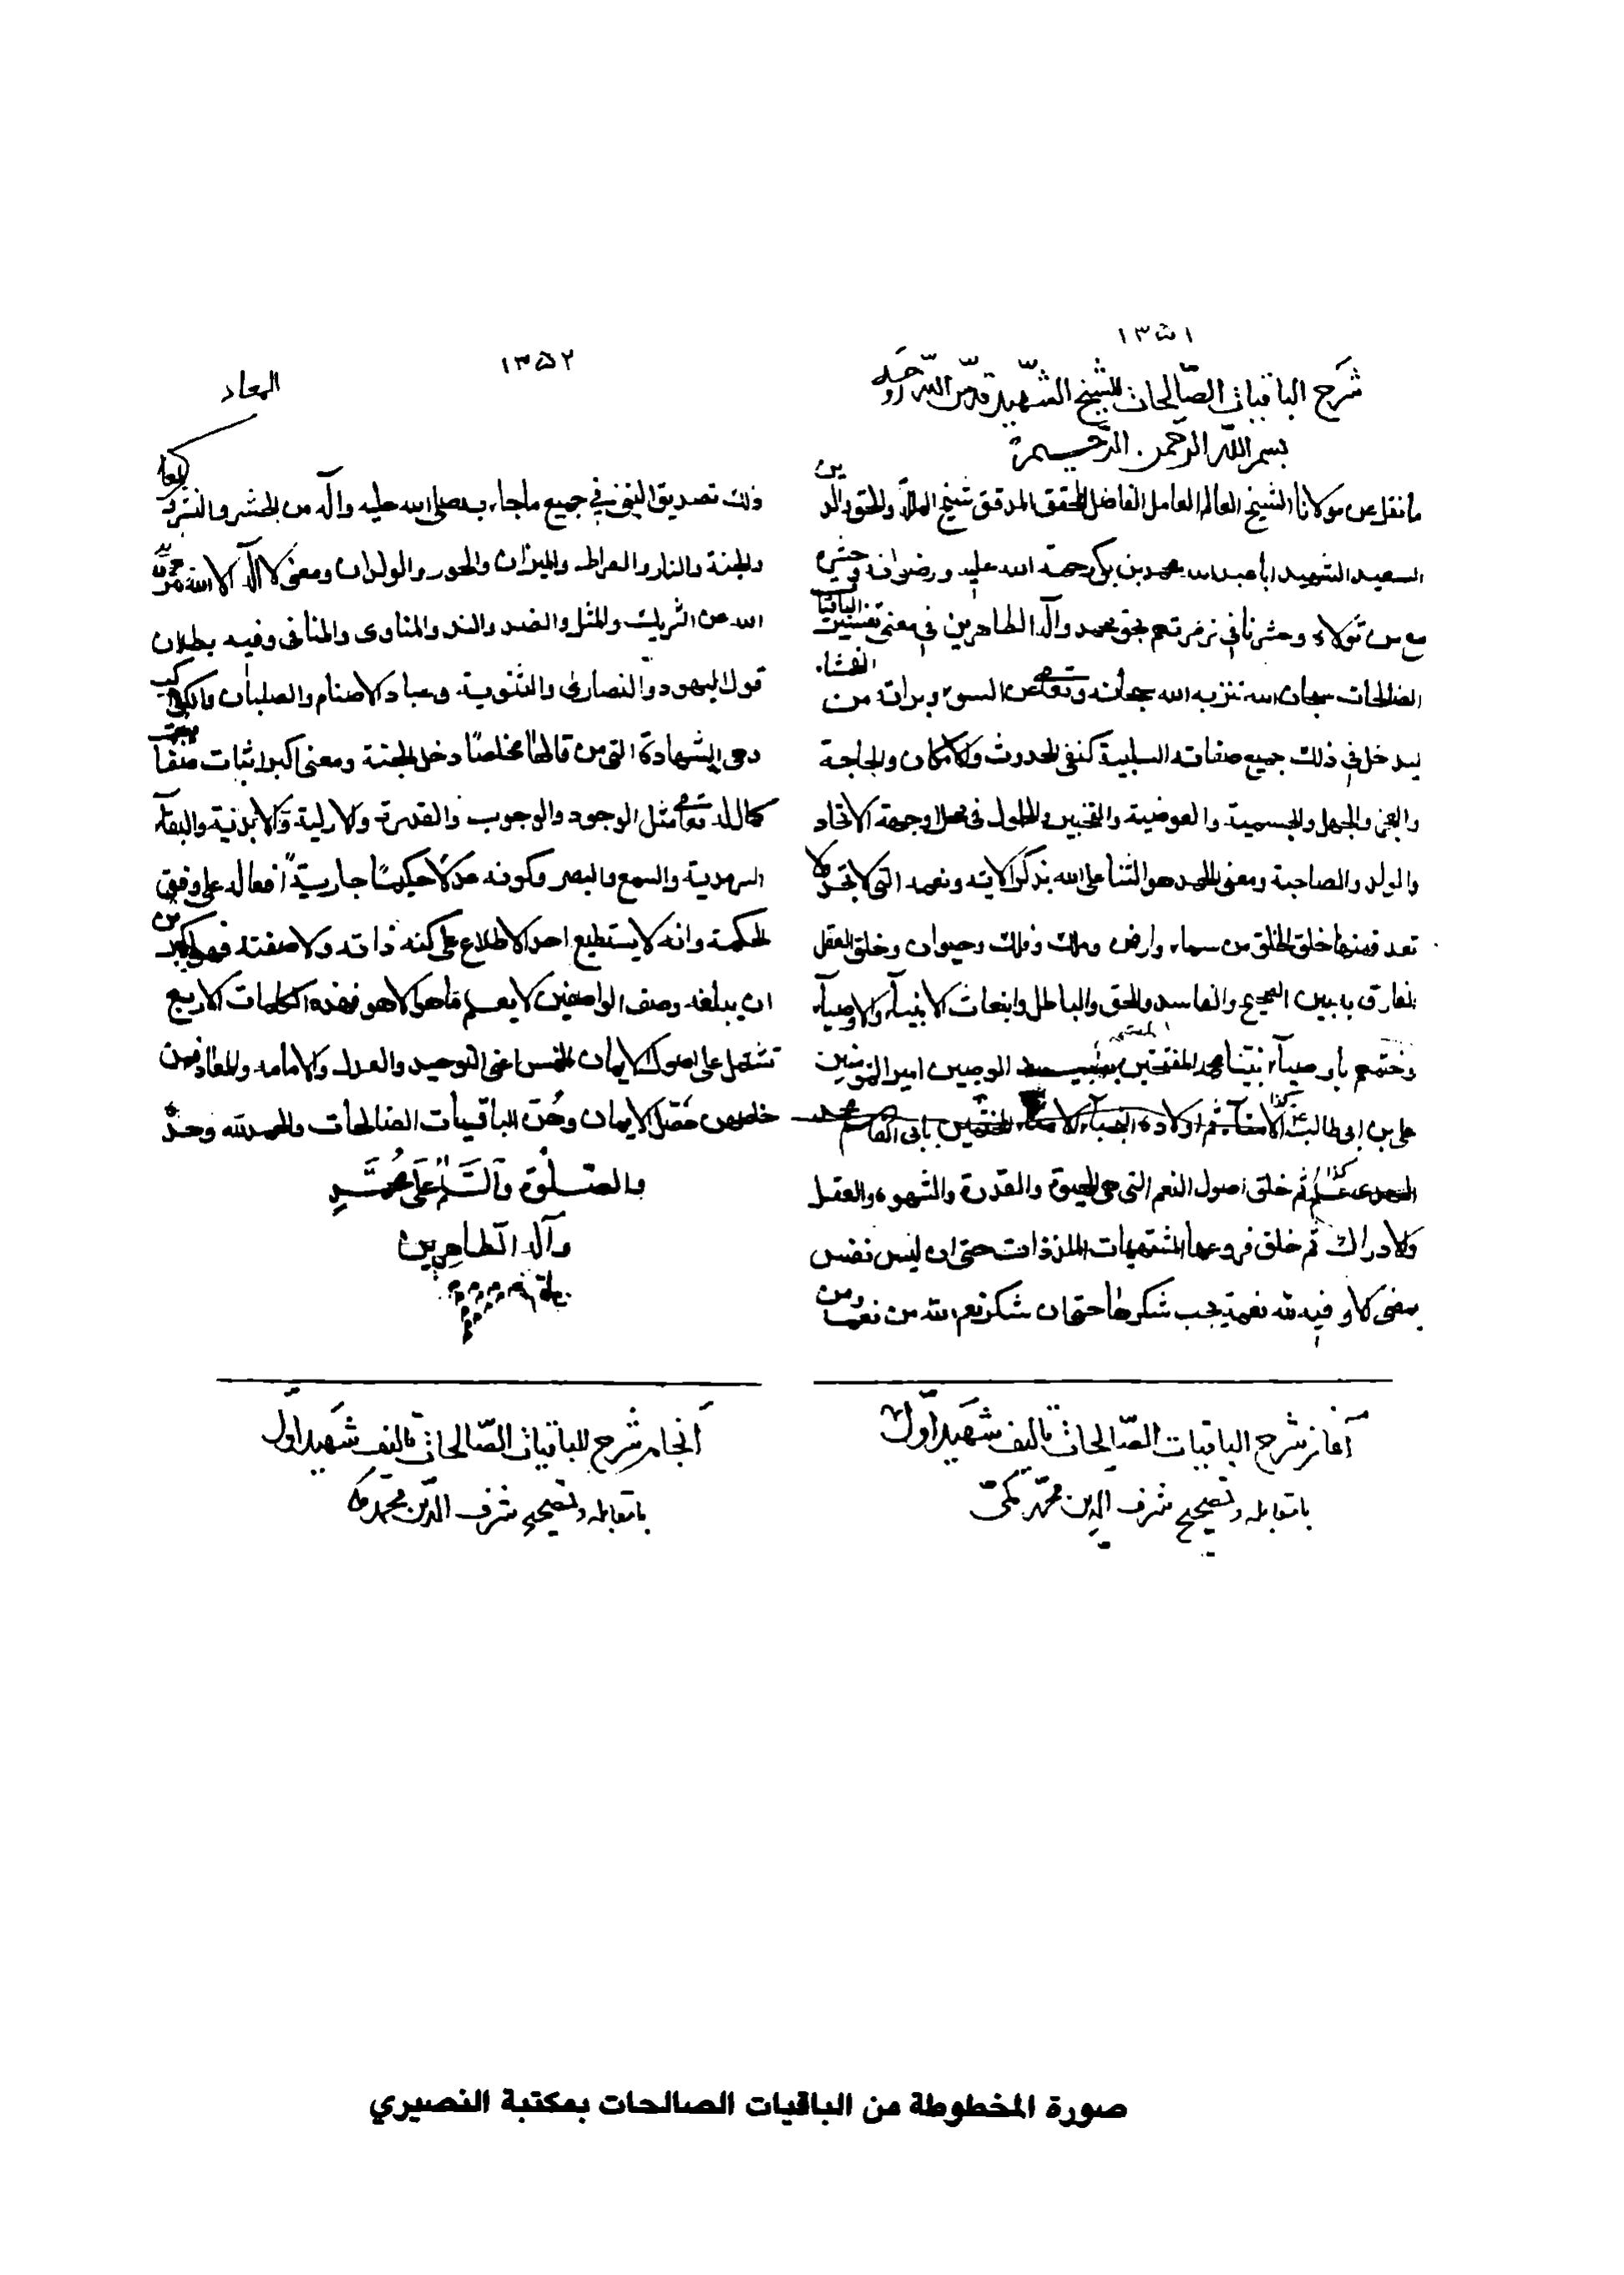 ١٣٥١
شرح الباقيات الصّالحات للشّيخ الشّهيد قدّس اللّه روحه
بسم اللّه الرّحمن الرّحيم
ما نقل عن مولانا الشيخ العالم العامل الفاضل المحقق المدقق شيخ الملّة والحق والدين
السعيد الشهيد ابا عبد الله محمد بن مكي رحمة الله عليه ورضوانه وحشره
مع من تولاه وحشرنا في زمرتهم بحق محمد وآله الطاهرين في معنى تفسير الباقيات
الصالحات سبحان الله تنزيه الله سبحانه وتعالى عن السوء وبراءته من الفحشاء
يدخل في ذلك جميع صفاته السلبية كنفي الحدوث والامكان والحاجة
والعجز والجهل والجسمية والعرضية والتحيز والحلول في محل او جهة الاتحاد
والولد والصاحبة ومعنى الحمد هو الثناء على الله بذكر آلائه ونعمه التي لا تحد ولا
تعد فمنها خلق الخلق من سماء وارض وملك وفلك وحيوان وخلق العقل
الفارق به بين الصحيح والفاسد والحق والباطل وابتعاث الانبياء والاوصياء
وختمهم باوصياء نبيّنا محمد المفتتحين بسيد الوصيين امير المؤمنين
علي بن ابي طالب المختتمين بابي القاسم محمد
المهدي ثم خلق اصول النعم التي هي الحيوة والقدرة والشهوة والعقل
والادراك ثم خلق فروعها المشتهيات الملذذات حتى ان ليس نفس
يمضى الا وفيه لله نعمة يجب شكرها حتى ان شكر نعم الله من نعمه ومن
آغاز شرح الباقيات الصّالحات تاليف شهيد اوّل
با مقابله و تصحيح شرف الدّين محمّد مكّى
١٣٥٢
المعاد
ذلك تصديق النبي في جميع ما جاء به صلى الله عليه وآله من الحشر والنشر
والجنة والنار والصراط والميزان والحور والولدان ومعنى لا آله الا الله توحيد
الله عن الشريك والمثل والضد والند والمناوى والمنافى وفيه بطلان
قول اليهود والنصارى والثنوية وعباد الاصنام والصلبان والكواكب
وهي الشهادة التي من قالها مخلصًا دخل الجنة ومعنى اكبر اثبات صفات
كماله تعالى مثل الوجود والوجوب والقدرة والازلية والابدية والبقآء
السرمدية والسمع والبصر وكونه عدلًا حكيمًا جارية افعاله على وفق
الحكمة وانه لا يستطيع احد الاطلاع على كنه ذاته ولا صفته فهو اكبر من
ان يبلغه وصف الواصفين لا يعلم ما هو الا هو فهذه الكلمات الاربع
تشتمل على اصول الايمان الخمس اعنى التوحيد والعدل والامامه والمعاد فمن
حصل الايمان وهنّ الباقيات الصالحات والحمد لله وحده
والصلوة والسّلم على محمّد
وآله الطاهرين
انجام شرح الباقيات الصّالحات تاليف شهيد اول
با مقابله و تصحيح شرف الدّين محمّد مكى
صورة المخطوطة من الباقيات الصالحات بمكتبة النصيري